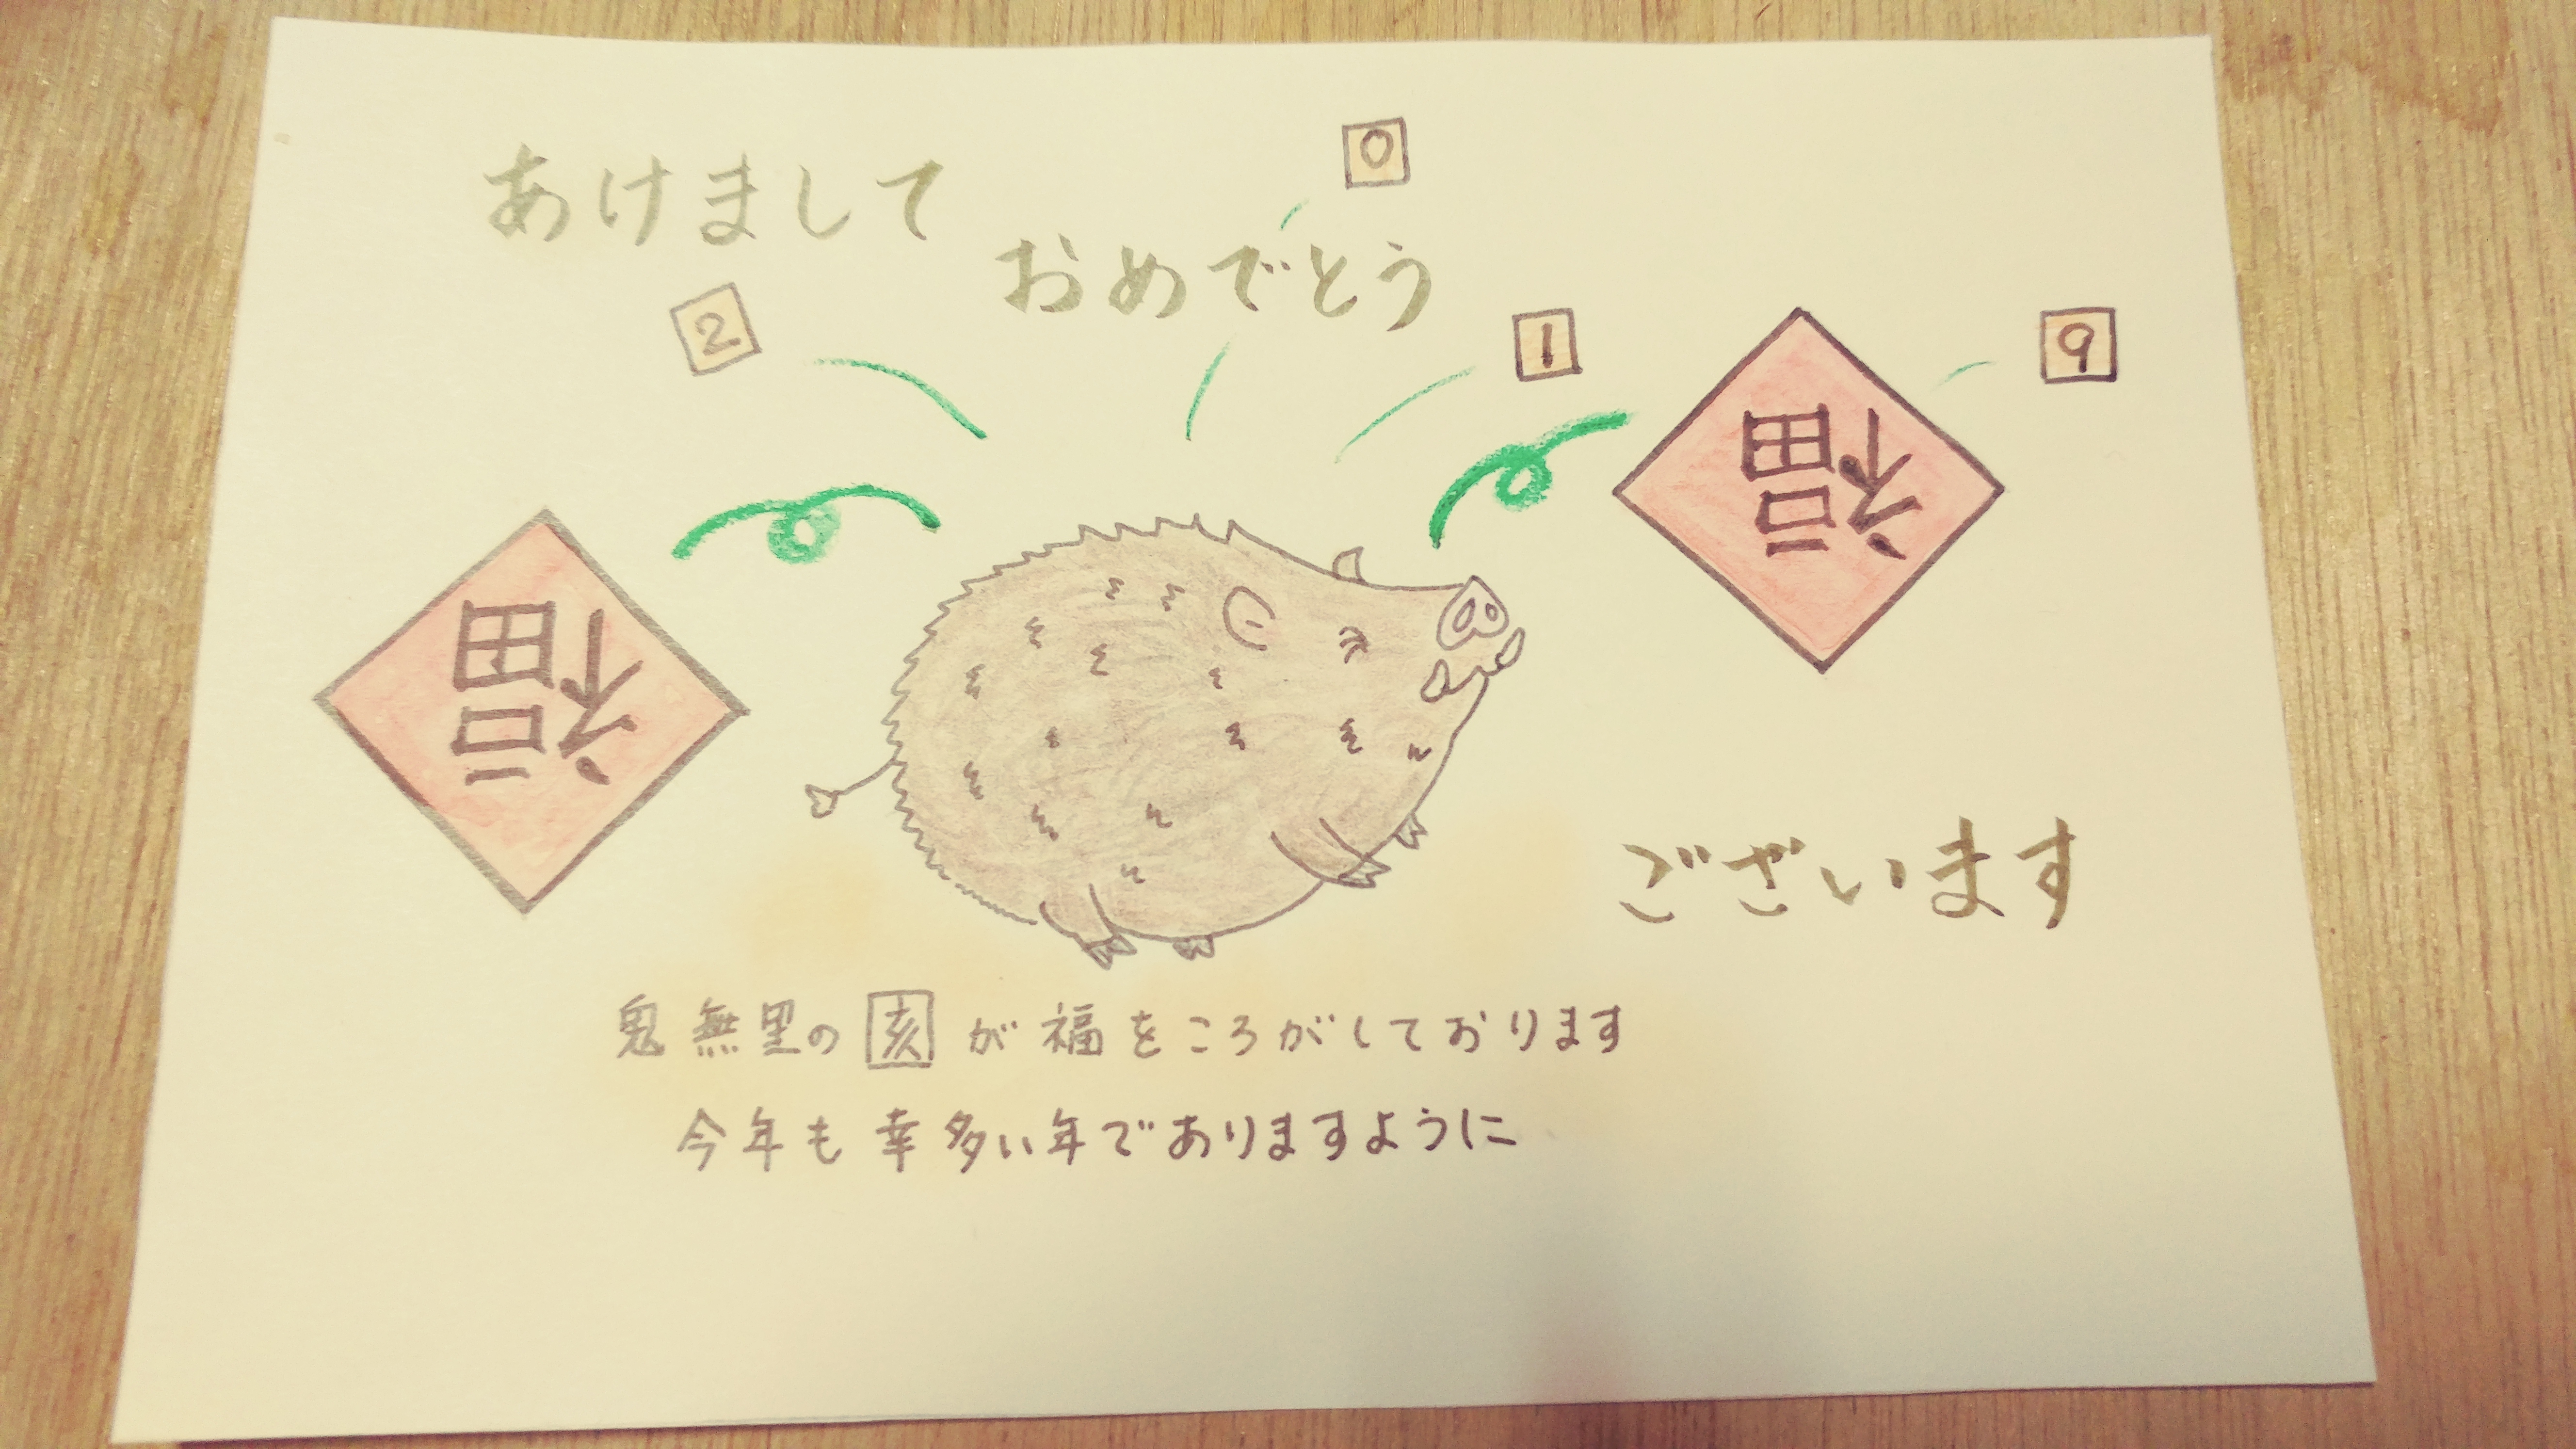 あけまして
おめでとう
2
0
1
9
福
福
ございます
鬼無里の亥が福をころがしております
今年も幸多い年でありますように